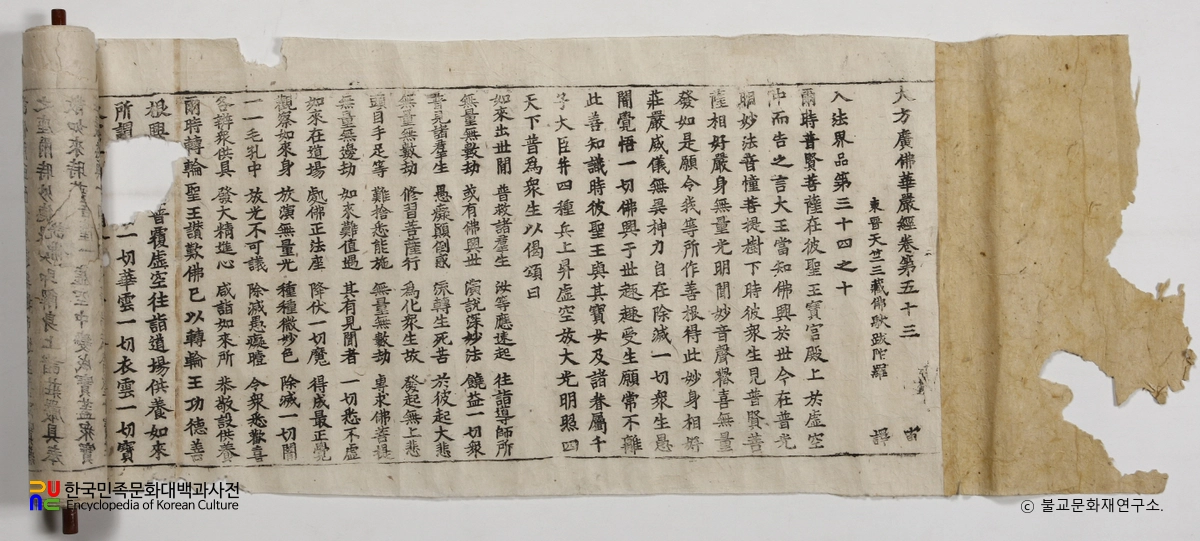 大方廣佛華嚴經卷第五十三
東晉天竺三藏佛馱跋陀羅 譯
入法界品第三十四之十
爾時普賢菩薩在彼聖王寶宮殿上於虛空
中而告之言大王當知佛興於世今在普光
明妙法音幢菩提樹下時彼衆生見普賢菩
薩相好嚴身無量光明聞妙音聲馨喜無量
發如是願令我等所作善根得此妙身相好
莊嚴威儀無異神力自在除滅一切衆生愚
闇覺悟一切佛興于世趣趣受生願常不離
此善知識時彼聖王與其寶女及諸眷屬千
子大臣幷四種兵上昇虛空放大光明照四
天下普爲衆生以偈頌曰
如來出世間 普救諸羣生 汝等應速起 往詣導師所
無量無數劫 或有佛興世 演說深妙法 饒益一切衆
普見諸羣生 愚癡顚倒惑 流轉生死苦 於彼起大悲
無量無數劫 修習菩薩行 爲化衆生故 發起無上悲
頭目手足等 難捨悉能施 無量無數劫 專求佛菩提
無量無邊劫 如來難值遇 其有見聞者 一切悉不虛
如來在道場 處佛正法座 降伏一切魔 得成最正覺
觀察如來身 放演無量光 種種微妙色 除滅一切闇
一一毛孔中 放光不可議 除滅愚癡曀 令衆悉歡喜
各辦衆供具 發大精進心 咸詣如來所 恭敬設供養
爾時轉輪聖王讚歎佛已以轉輪王功德善
根興 普覆虛空往詣道場供養如來
所謂 一切華雲一切衣雲一切寶
한국민족문화대백과사전
Encyclopedia of Korean Culture
ⓒ 불교문화재연구소.